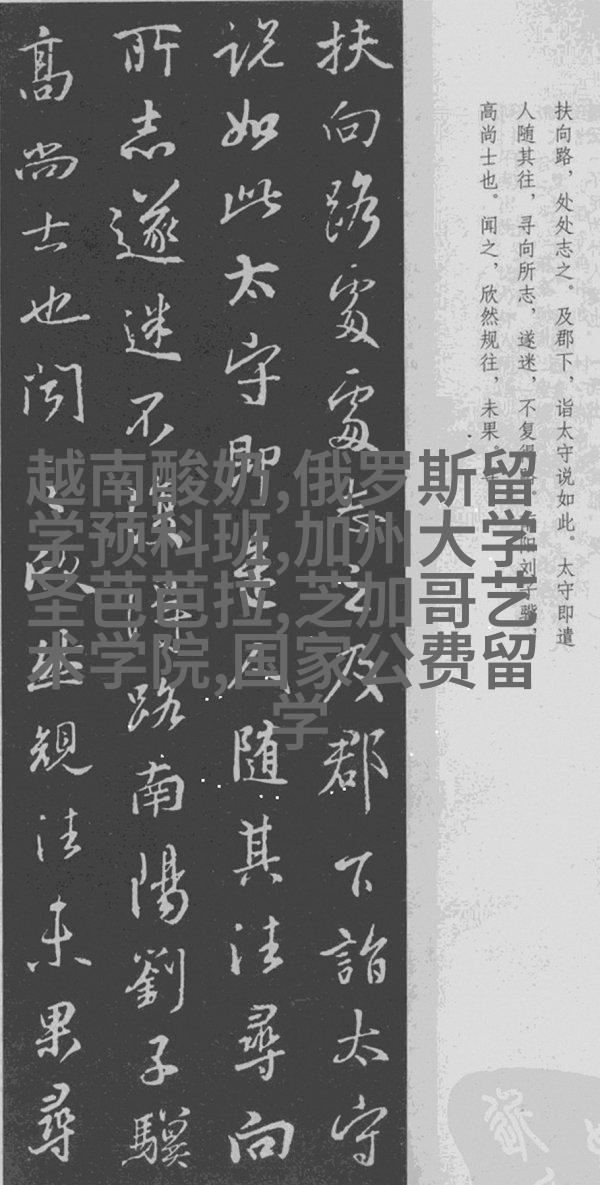 扶向路，处处志之。及郡下，诣太守说如此。太守即遣
人随其往，寻向所志，遂迷，不复得路。南阳刘子骥，
高尚士也。闻之，欣然规往，未果
扶向路處處志之及郡下詣太守
说如此太守即遣人随其往尋向
所志遂迷不復得路南陽劉子驥
高尚士也闻之欣然規往未果尋
越南酸奶,俄罗斯留
学预科班,加州大学
圣芭芭拉,芝加哥艺
术学院,国家公费留
学